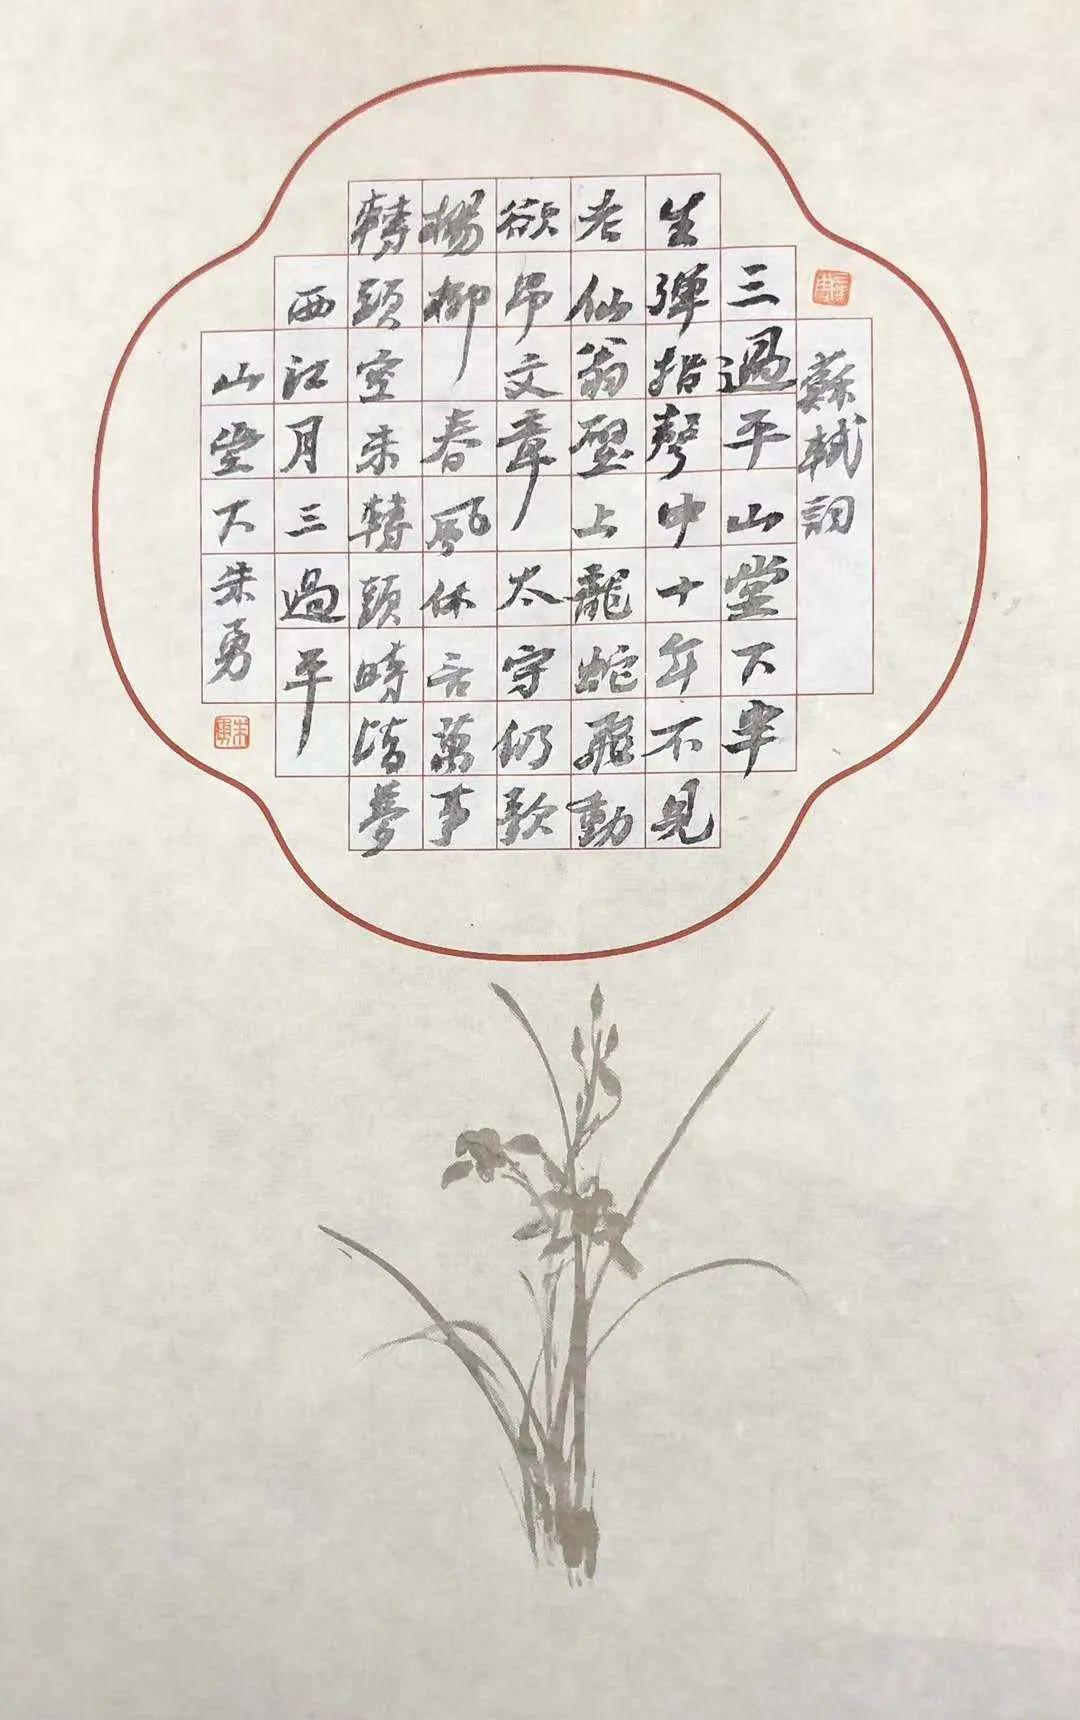 蘇軾詞
三過平山堂下半
生彈指聲中十年不見
老仙翁壁上龍蛇飛動
欲吊文章太守仍歌
楊柳春風休言萬事
轉頭空未轉頭時皆夢
西江月三過平
山堂下朱勇
朱勇